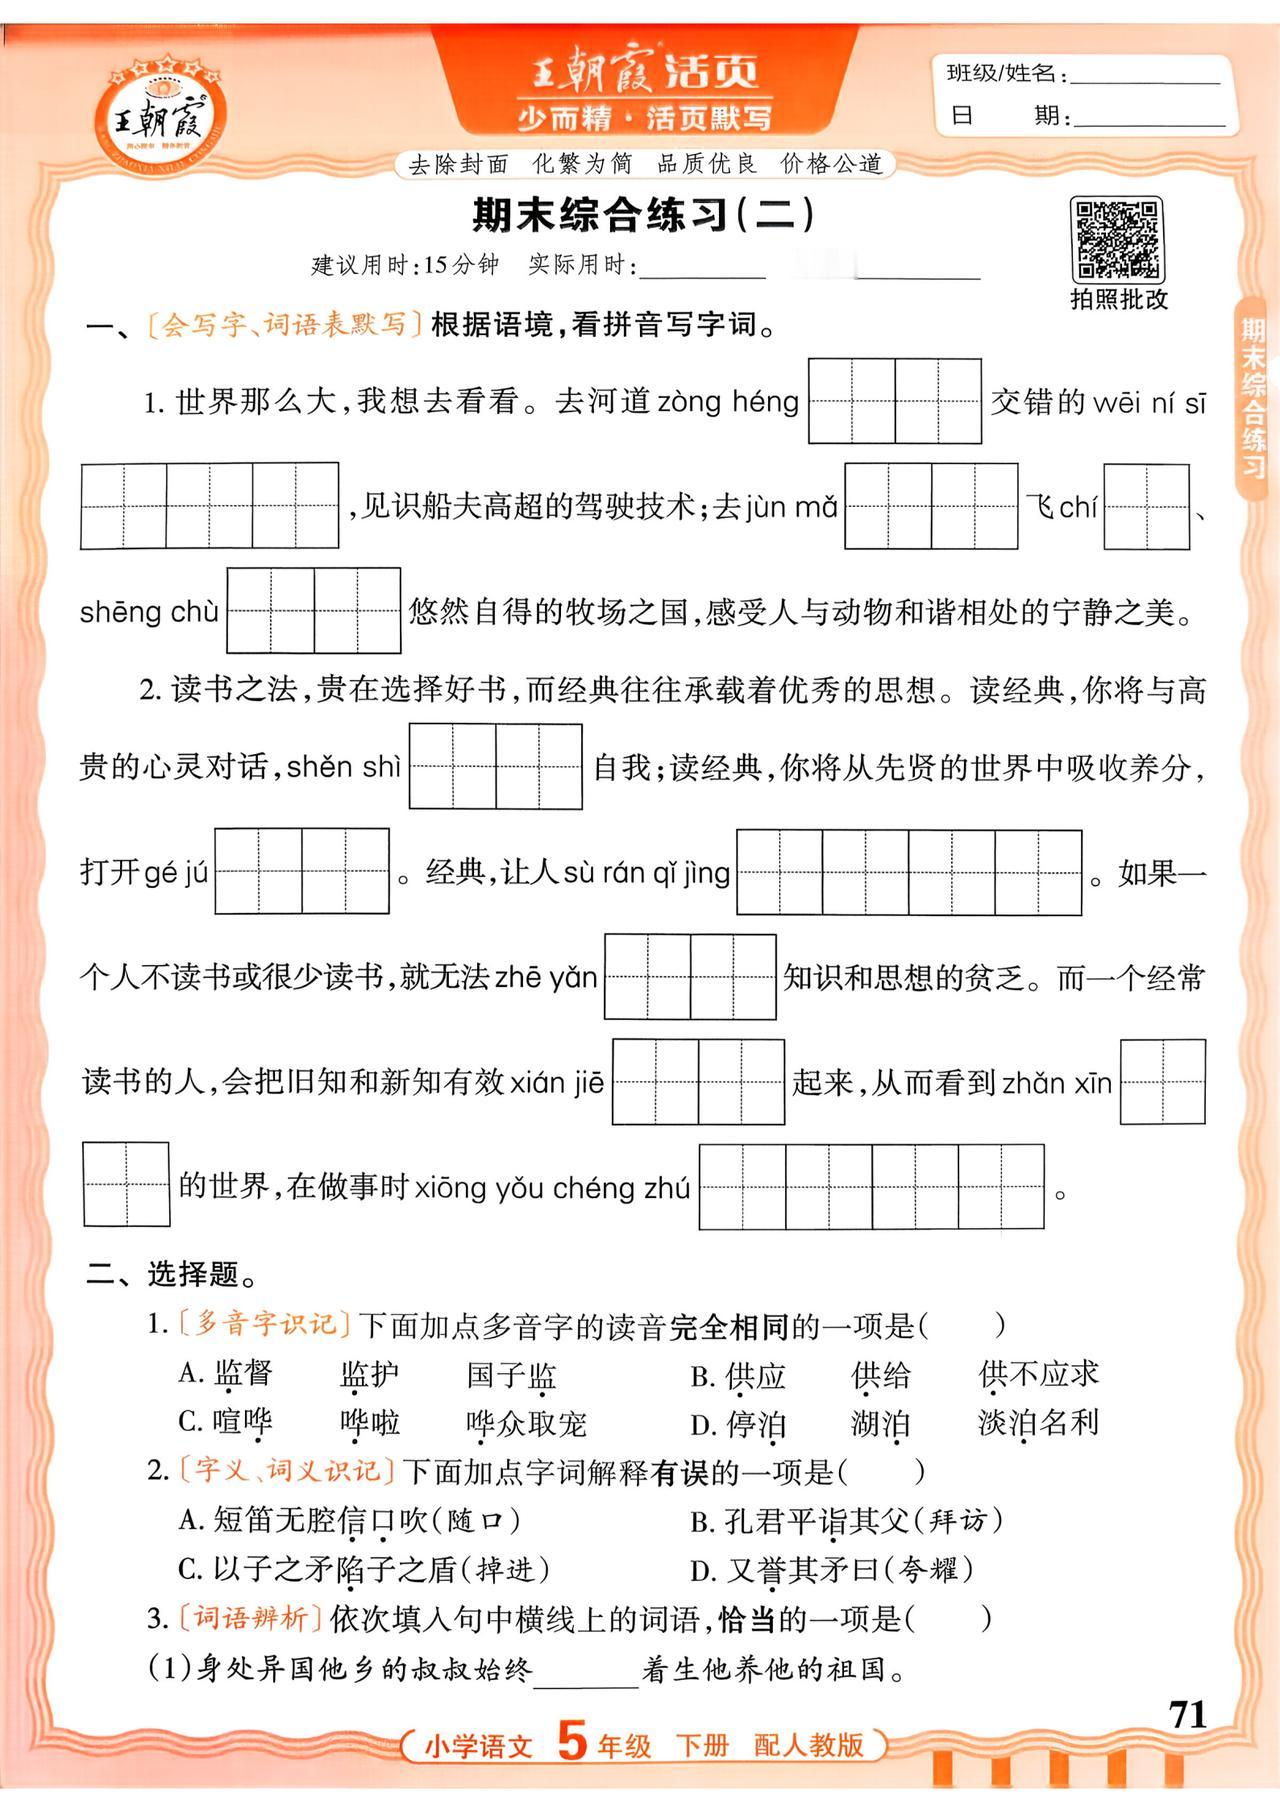 王朝霞
王朝霞活页
少而精·活页默写
班级/姓名：
日 期：
去除封面 化繁为简 品质优良 价格公道
期末综合练习（二）
建议用时：15分钟 实际用时：
拍照批改
期末综合练习
一、〔会写字、词语表默写〕根据语境，看拼音写字词。
1. 世界那么大，我想去看看。去河道 zòng héng 交错的 wēi ní sī
，见识船夫高超的驾驶技术；去 jùn mǎ 飞 chí 、
shēng chù 悠然自得的牧场之国，感受人与动物和谐相处的宁静之美。
2. 读书之法，贵在选择好书，而经典往往承载着优秀的思想。读经典，你将与高
贵的心灵对话，shěn shì 自我；读经典，你将从先贤的世界中吸收养分，
打开 gé jú 。经典，让人 sù rán qǐ jìng 。如果一
个人不读书或很少读书，就无法 zhē yǎn 知识和思想的贫乏。而一个经常
读书的人，会把旧知和新知有效 xián jiē 起来，从而看到 zhǎn xīn
的世界，在做事时 xiōng yǒu chéng zhú 。
二、选择题。
1.〔多音字识记〕下面加点多音字的读音完全相同的一项是（ ）
A. 监督 监护 国子监 B. 供应 供给 供不应求
C. 喧哗 哗啦 哗众取宠 D. 停泊 湖泊 淡泊名利
2.〔字义、词义识记〕下面加点字词解释有误的一项是（ ）
A. 短笛无腔信口吹（随口） B. 孔君平诣其父（拜访）
C. 以子之矛陷子之盾（掉进） D. 又誉其矛曰（夸耀）
3.〔词语辨析〕依次填入句中横线上的词语，恰当的一项是（ ）
（1）身处异国他乡的叔叔始终______着生他养他的祖国。
71
小学语文 5年级 下册 配人教版